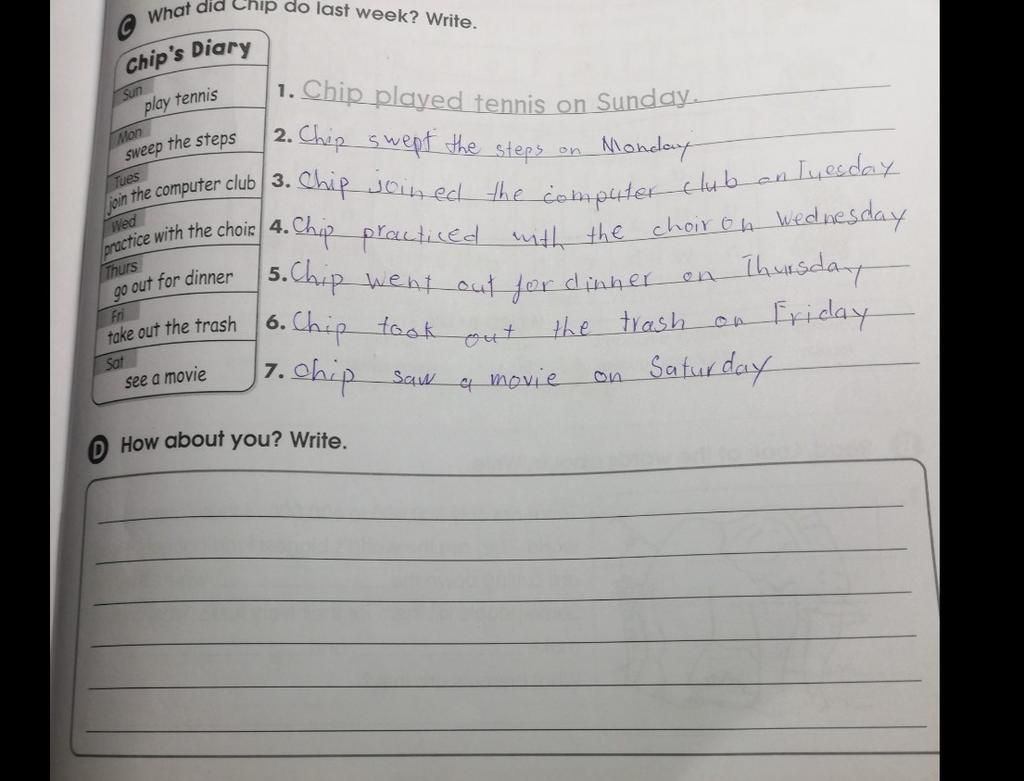 C What did Chip do last week? Write.
Chip's Diary
Sun
play tennis
Mon
sweep the steps
Tues
join the computer club
Wed
practice with the choir
Thurs
go out for dinner
Fri
take out the trash
Sat
see a movie
1. Chip played tennis on Sunday.
2. Chip swept the steps on Monday
3. Chip joined the computer club on Tuesday
4. Chip practiced with the choir on Wednesday
5. Chip went out for dinner on Thursday
6. Chip took out the trash on Friday
7. Chip saw a movie on Saturday
D How about you? Write.